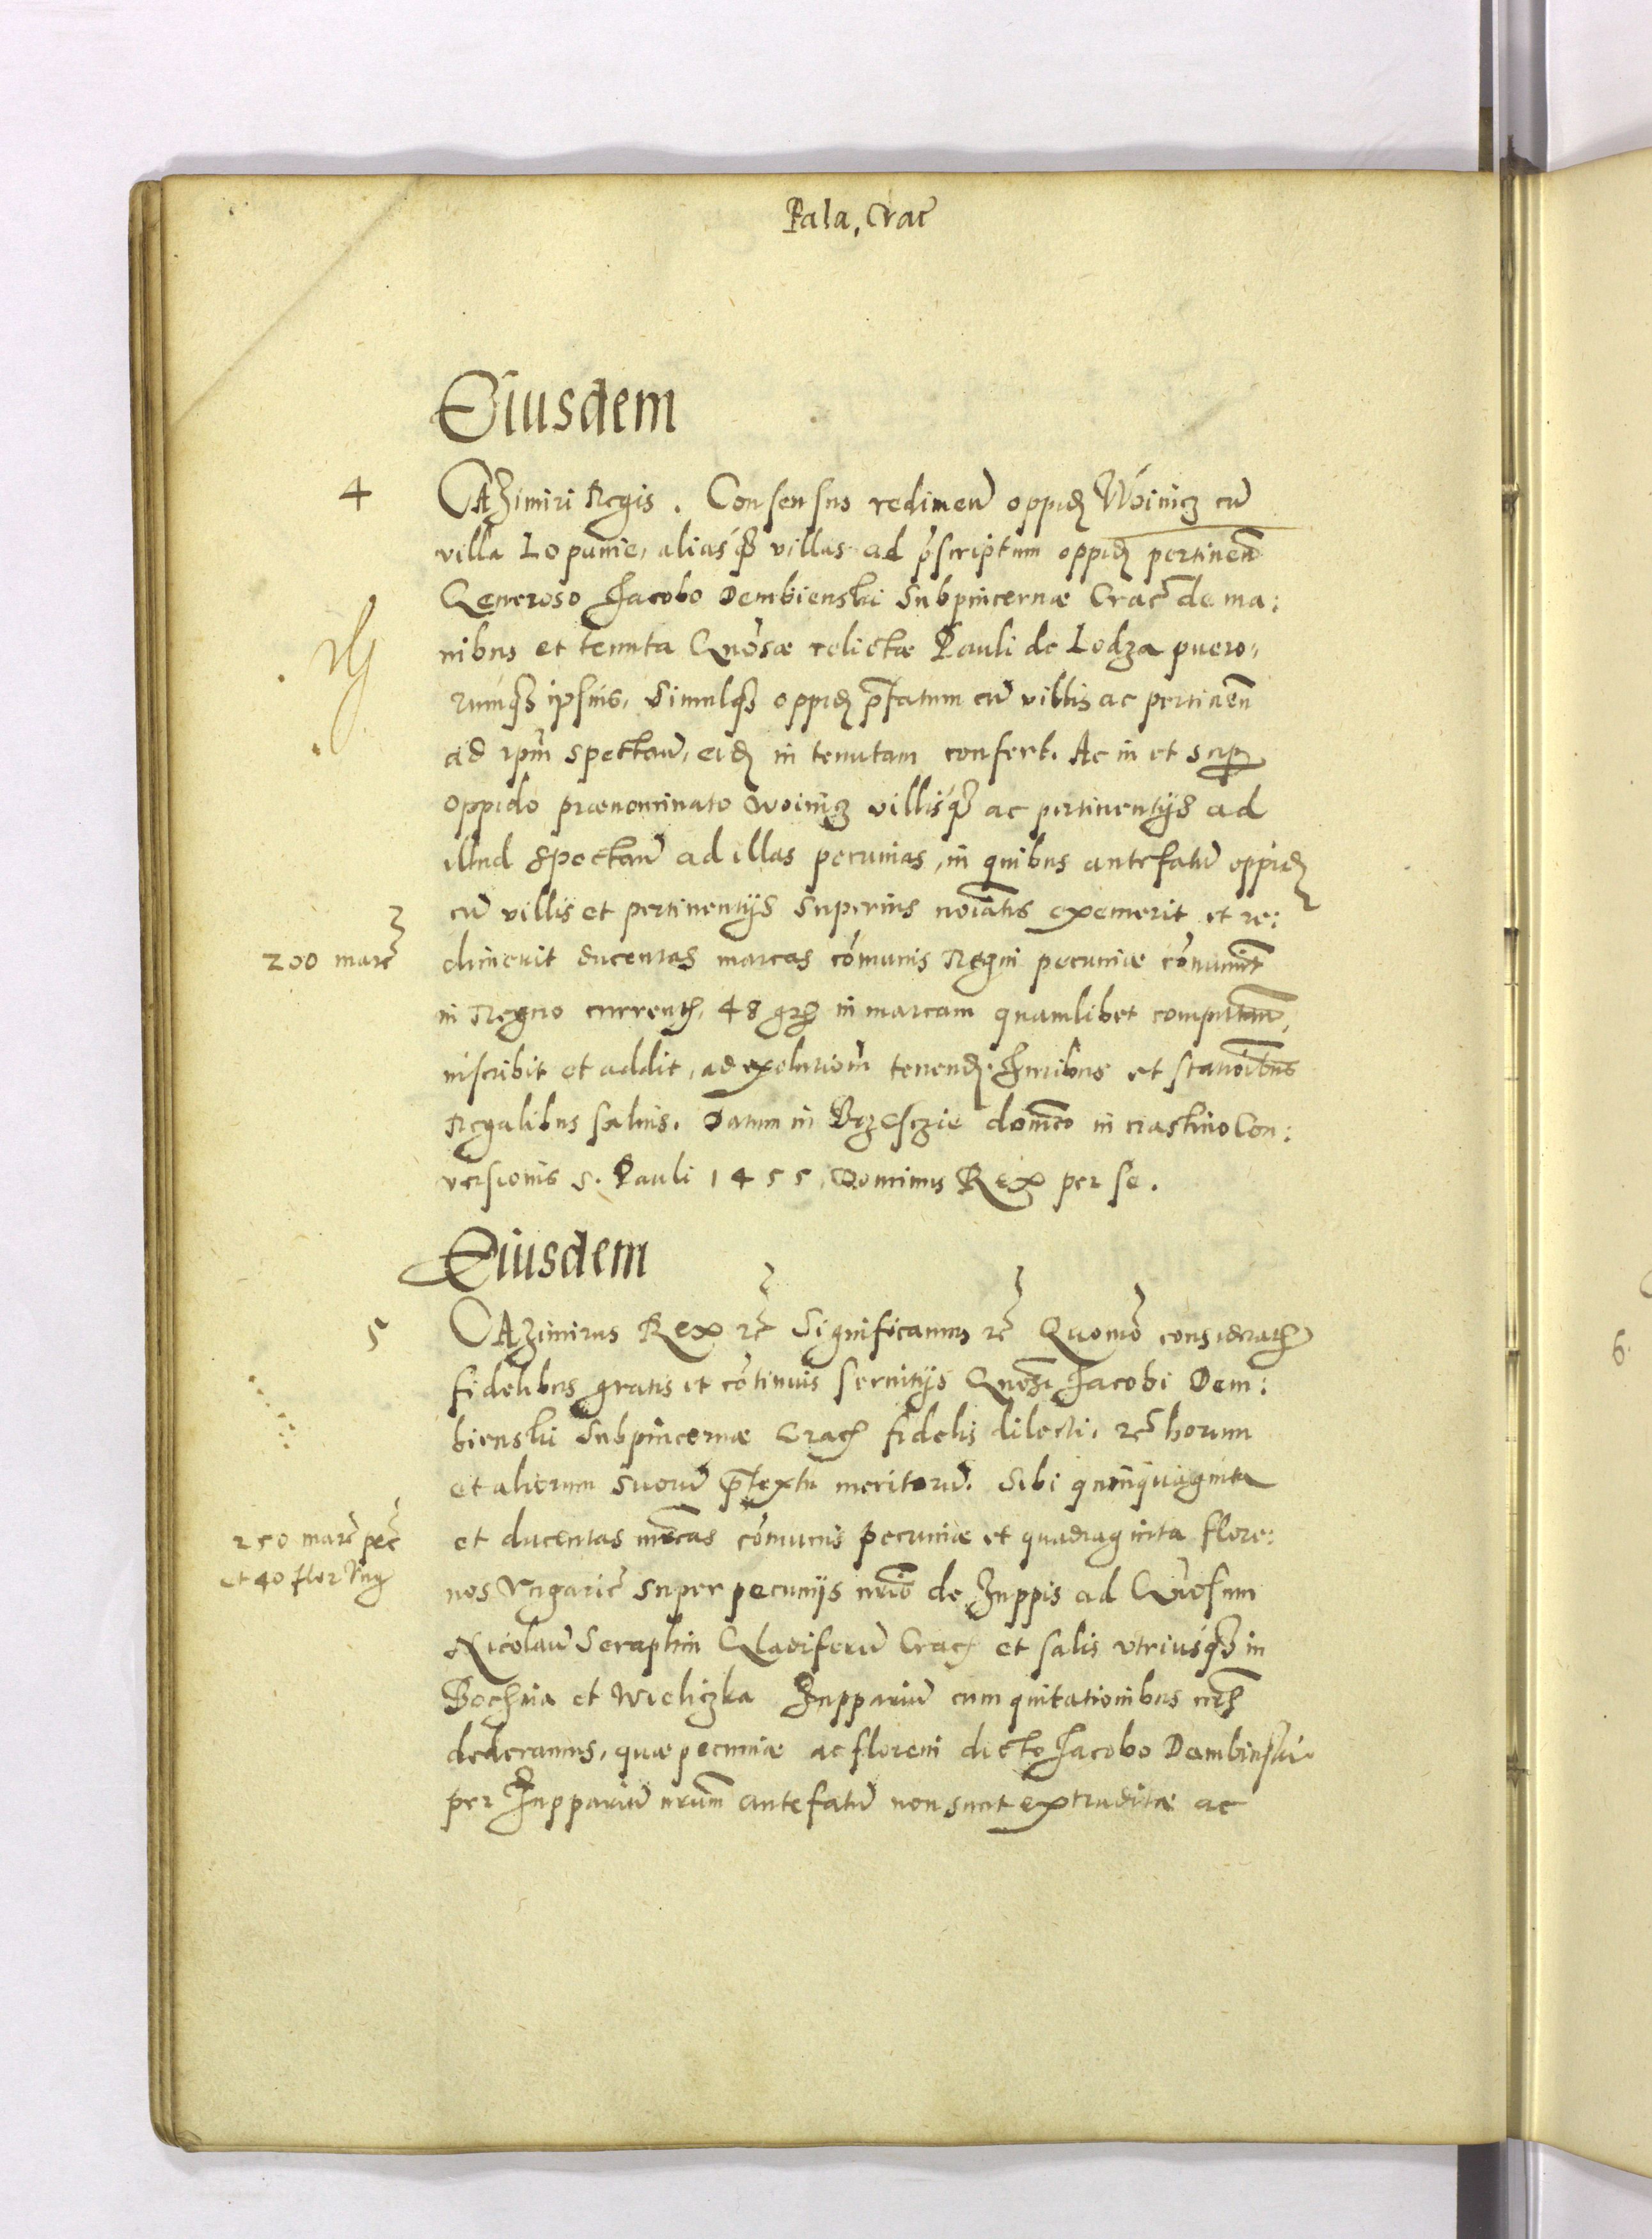 Pala, Crac̃
Eiusdem
4
CAZimiri Regis. Consensus redimen̄ oppid̨ Woinicz cũ
villa Lopanie, aliasq̨ villas ad p̃scriptum oppid̨ pertinen̄
Generoso Jacobo Dembienski Subpincernæ Crac̃ de ma:
nibus et tenuta Gnõsæ relictæ Pauli de Lodza puero,
rumq̨ ipsius, Simulq̨ oppid̨ p̄fatum cũ villis ac pertinen̄
ad ip̃m spectan̄, eid̨ in tenutam confert. Ac in et sup̱
oppido prænominato Woinicz villisq̨ ac pertinentijs ad
illud spectan̄ ad illas pecunias, in quibus antefatũ oppid̨
cũ villis et pertinentijs superius noĩatis exemerit et re:
200 marc̃
dimerit ducentas marcas cõmunis Regni pecuniæ cõmunit̃
in Regno currentꝭ, 48 grꝭ in marcam quamlibet computan̄,
inscribit et addit, ad exolutiom̃ tenend̨. Juribus et stationĩbus
Regalibus saluis. Datum in Brzesczie domĩco in crastino Con:
versionis S. Pauli 1455, Dominus Rex per se.
Eiusdem
5
CAZimirus Rex ec̃ Significamus ec̃ Quomõ consideratꝭ
fidelibus gratis et cõtinuis seruitijs Gnõsi Jacobi Dem:
bienski Subpincernæ Cracꝭ fidelis dilecti, ec̃ horum
et aliorum suorũ p̄textu meritorũ. Sibi quinquaginta
250 marc̃ pec̃
et ducentas mr̃cas cõmunis pecuniæ et quadraginta flore:
et 40 flor Vng
nos Vngaric̃ super pecunijs nr̃is de Zuppis ad Gn̄osum
Nicolaũ Seraphin Gladiferũ Cracꝭ et salis vtriusq̨ in
Bochnia et Wieliczka Zuppariũ cum quitationibus nr̃is
dederamus, quæ pecuniæ ac floreni dicto Jacobo Dambinski
per Zuppariũ nr̃um antefatũ non sunt extraditæ ac
6.